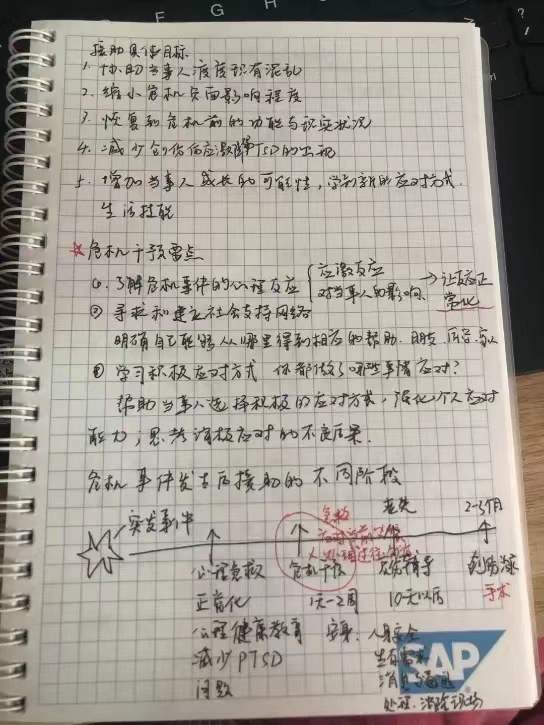 F G H
援助具体目标
1. 协助当事人渡度现有混乱
2. 缩小危机负面影响程度
3. 恢复到危机前的功能与现实状况
4. 减少创伤后应激障PTSD的出现
5. 增加当事人成长的可能性，学到新的应对方式.
生活技能
危机干预要点
①.了解危机事件的心理反应 应激反应 对当事人的影响 → 让反应正
常化
② 寻求和建立社会支持网络
明确自己能够从哪里得到相应的帮助. 朋友. 家人
③ 学习积极应对方式 你都做了哪些事情应对?
帮助当事人选择积极的应对方式，强化个人应对
能力，思考消极应对的不良后果.
危机事件发生后援助的不同阶段
突发事件
2-3个月
心理急救 危机干预 哀伤辅导 创伤治疗
正常化 1天-2周 10天以后 手术
心理健康教育 安身: 人身安全
减少PTSD 生存需求
问题
SAP